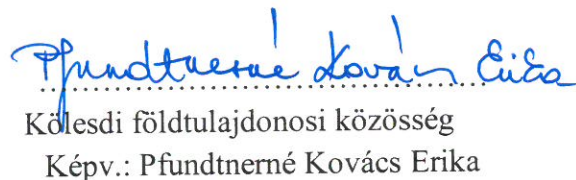 Pfundtnerné Kovács Erika
Kölesdi földtulajdonosi közösség
Képv.: Pfundtnerné Kovács Erika